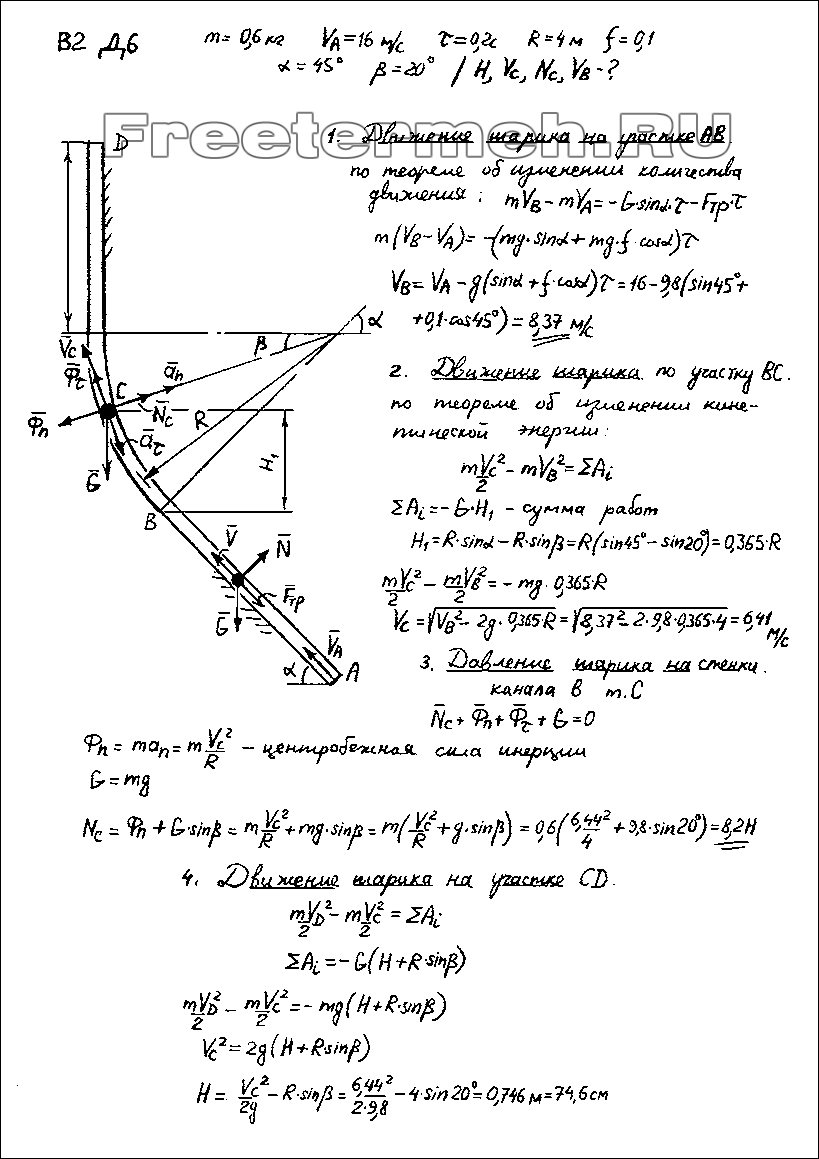 В2 Д6 m=0,6кг VA=16 м/с τ=0,2с R=4м f=0,1
α=45° β=20° / H, VC, NC, VB-?
Freetermeh.RU
1. Движение шарика на участке АВ.
по теореме об изменении количества
движения: mVB-mVA=-G·sinα·τ-Fтр·τ
m(VB-VA)=-(mg·sinα+mg·f·cosα)τ
VB=VA-g(sinα+f·cosα)τ=16-9,8(sin45°+
+0,1·cos45°)=8,37 м/с
2. Движение шарика по участку ВС.
по теореме об изменении кине-
тической энергии:
mVC²/2-mVB²/2=ΣAi
ΣAi=-G·H1 - сумма работ
H1=R·sinα-R·sinβ=R(sin45°-sin20°)=0,365·R
mVC²/2-mVB²/2=-mg·0,365·R
VC=√(VB²-2g·0,365·R)=√(8,37²-2·9,8·0,365·4)=6,41 м/с
3. Давление шарика на стенки
канала в т.С
N̄C+Φ̄n+Φ̄τ+G=0
D
α
β
V̄C
Φ̄τ
C
ān
N̄C
Φ̄n
āτ
R
Ḡ
H1
B
V̄
N̄
F̄тр
Ḡ
V̄A
α
A
Φn=man=mVC²/R - центробежная сила инерции
G=mg
NC=Φn+G·sinβ=mVC²/R+mg·sinβ=m(VC²/R+g·sinβ)=0,6(6,44²/4+9,8·sin20°)=8,2Н
4. Движение шарика на участке CD.
mVD²/2-mVC²/2=ΣAi
ΣAi=-G(H+R·sinβ)
mVD²/2-mVC²/2=-mg(H+R·sinβ)
VC²=2g(H+R·sinβ)
H=VC²/2g-R·sinβ=6,44²/2·9,8-4·sin20°=0,746м=74,6см